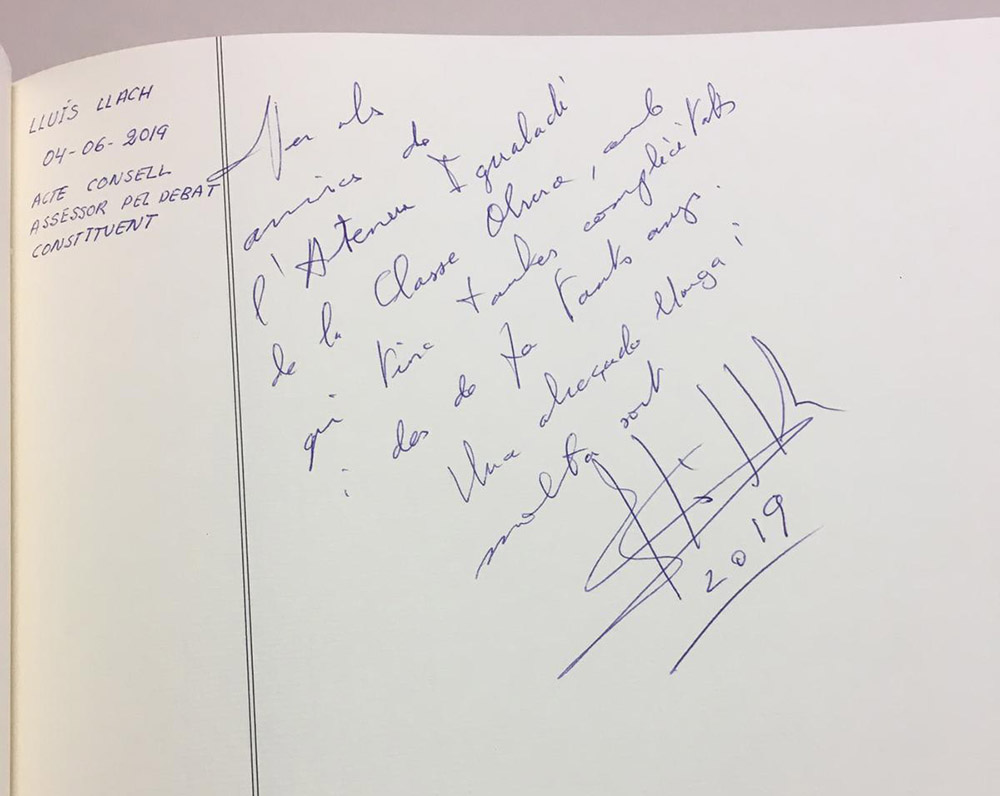 LLUÍS LLACH
04-06-2019
ACTE CONSELL
ASSESSOR PEL DEBAT
CONSTITUENT
Per als
amics de
l'Ateneu Igualadí
de la Classe Obrera, amb
qui tinc tantes complicitats
i des de fa tants anys.
Una abraçada llarga i
molta sort
2019